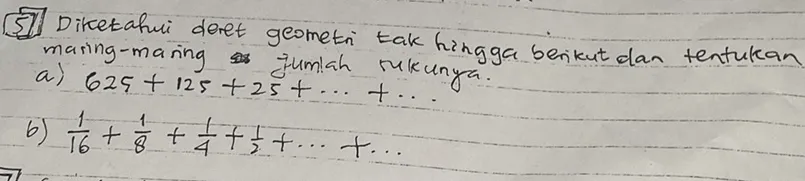 5 Diketahui deret geometri tak hingga berikut dan tentukan
masing-masing jumlah sukunya.
a) 625 + 125 + 25 + ... + ...
b) 1/16 + 1/8 + 1/4 + 1/2 + ... + ...